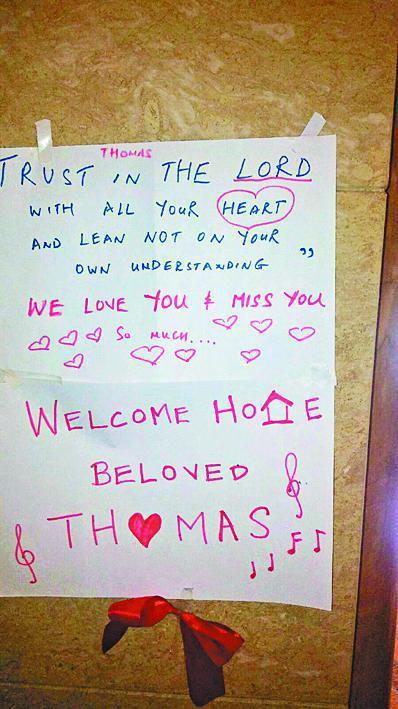 THOMAS
TRUST IN THE LORD
WITH ALL YOUR HEART
AND LEAN NOT ON YOUR
OWN UNDERSTANDING ”
WE LOVE YOU & MISS YOU
SO MUCH....
WELCOME HOME
BELOVED
THOMAS